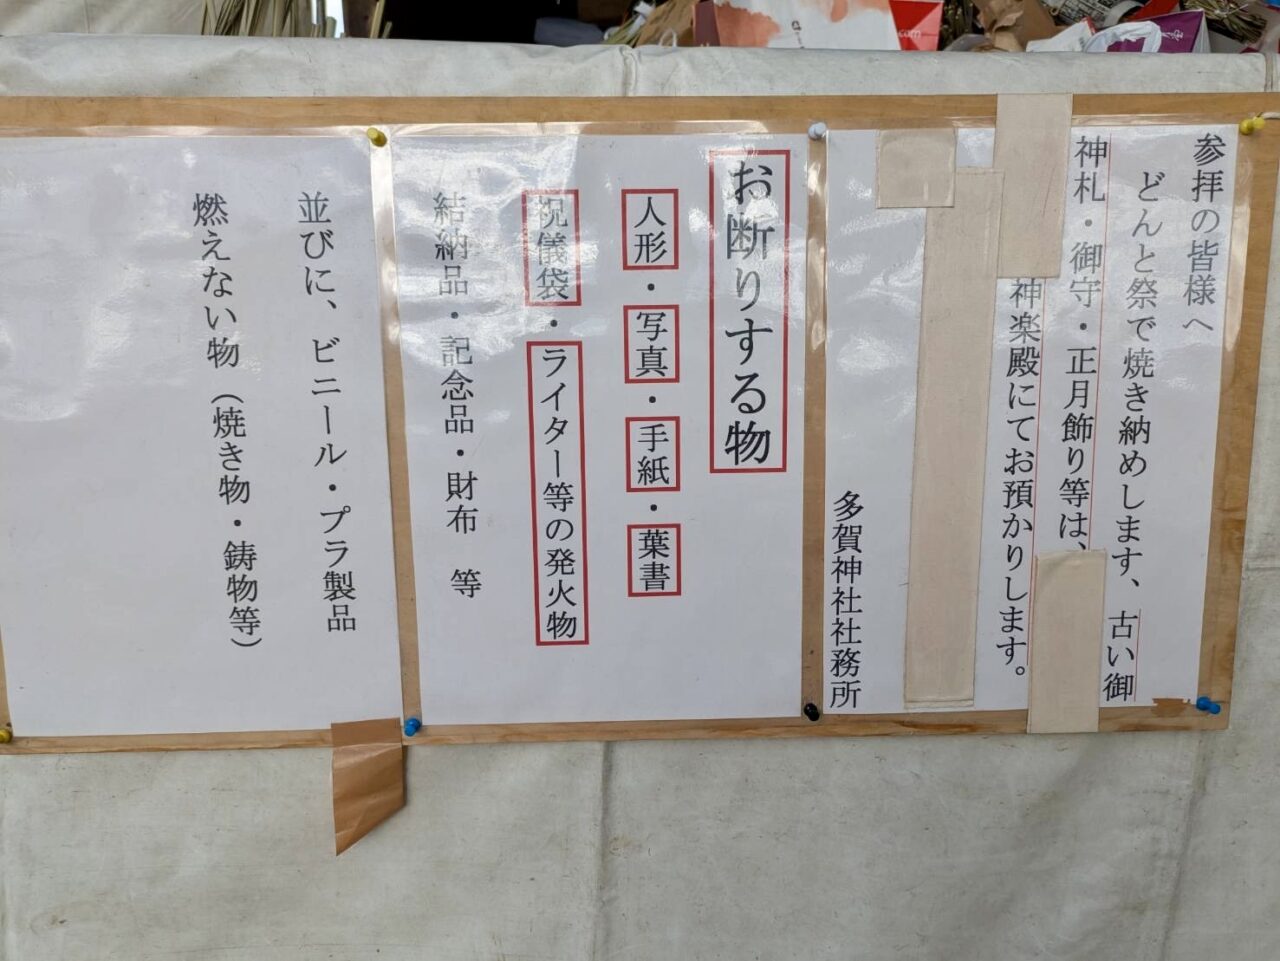 参拝の皆様へ
どんと祭で焼き納めします、古い御
神札・御守・正月飾り等は、
神楽殿にてお預かりします。
多賀神社社務所
お断りする物
人形・写真・手紙・葉書
祝儀袋・ライター等の発火物
結納品・記念品・財布 等
並びに、ビニール・プラ製品
燃えない物（焼き物・鋳物等）